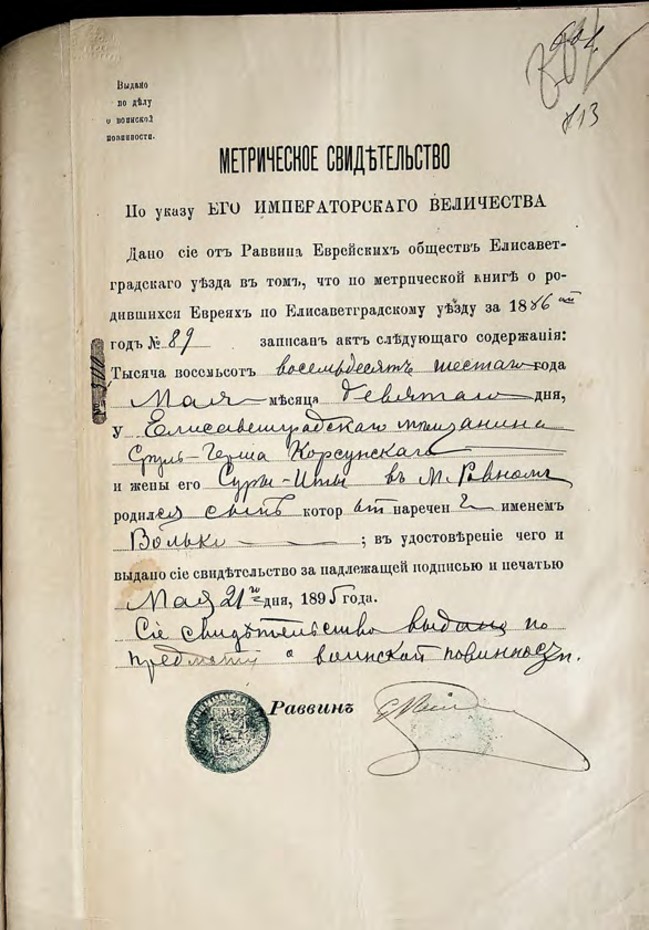 813
Выдано
по дѣлу
о воинской
повинности.
МЕТРИЧЕСКОЕ СВИДѢТЕЛЬСТВО
По указу ЕГО ИМПЕРАТОРСКАГО ВЕЛИЧЕСТВА
Дано сіе отъ Раввина Еврейскихъ обществъ Елисавет-
градскаго уѣзда въ томъ, что по метрической книгѣ о ро-
дившихся Евреяхъ по Елисаветградскому уѣзду за 1886
годъ № 89 записанъ актъ слѣдующаго содержанія:
Тысяча восемьсотъ восемьдесятъ шестаго года
Мая мѣсяца девятаго дня,
у Елисаветградскаго мѣщанина
Сруль-Герша Корсунскаго
и жены его Суры-Иты въ М. Ровномъ
родился сынъ котор ый наречен ъ именемъ
Волько ; въ удостовѣреніе чего и
выдано сіе свидѣтельство за надлежащей подписью и печатью
Мая 21 дня, 1895 года.
Сіе свидѣтельство выдано по
предмету о воинской повинности.
Раввинъ